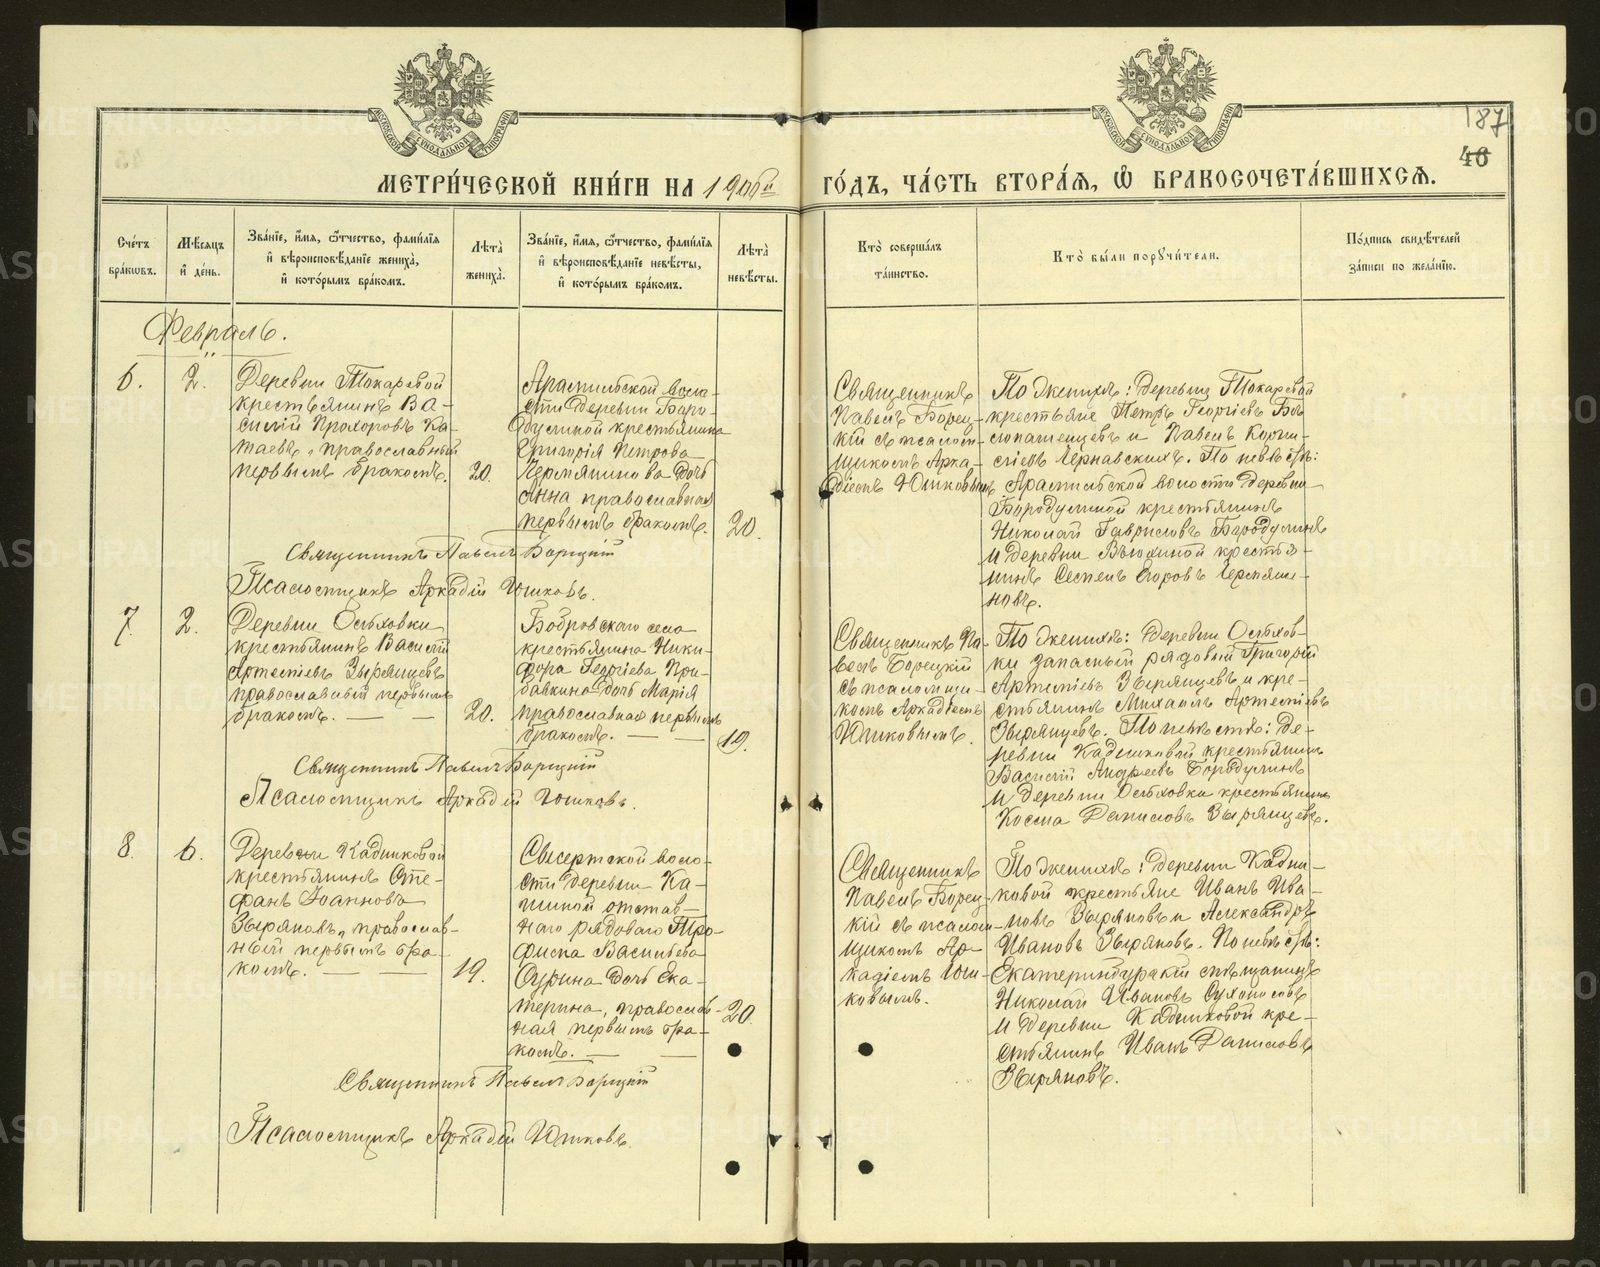 187
46
МЕТРИ́ЧЕСКОЙ КНИ́ГИ НА 1906й ГО́ДЪ, ЧА́СТЬ ВТОРА́Я, Ѽ БРАКОСОЧЕТА́ВШИХСЯ.
МОСКОВСКОЙ СѴНОДАЛЬНОЙ ТИПОГРАФІИ
МОСКОВСКОЙ СѴНОДАЛЬНОЙ ТИПОГРАФІИ
Сче́тъ
бра́кѡвъ.
Мѣ́сяцъ
и҆ де́нь.
Зва́нїе, и҆́мя, ѻ҆́тчество, фами́лїя
и҆ вѣроисповѣ́данїе жениха̀,
и҆ кото́рымъ бра́комъ.
Лѣта̀
жениха̀.
Зва́нїе, и҆́мя, ѻ҆́тчество, фами́лїя
и҆ вѣроисповѣ́данїе невѣ́сты,
и҆ кото́рымъ бра́комъ.
Лѣта̀
невѣ́сты.
Кто̀ соверша́лъ
та́инство.
Кто̀ бы́ли порꙋчи́тели.
По́дпись свидѣ́телей
за́писи по жела́нїю.
Февраль.
6.
2.
Деревни Токаревой
крестьянинъ Ва-
силій Прохоровъ Ка-
таевъ, православный
первымъ бракомъ.
20.
Арамильской воло-
сти деревни Боро-
дулиной крестьянина
Григорія Петрова
Чермянинова дочь
Анна православная
первымъ бракомъ.
20.
Священникъ
Павелъ Борец-
кій съ псалом-
щикомъ Арка-
діемъ Юшковымъ
По женихѣ: деревни Токаревой
крестьяне Петръ Георгіевъ Бѣ-
лопашенцевъ и Павелъ Корни-
ліевъ Чернавскихъ. По невѣстѣ:
Арамильской волости деревни
Бородулиной крестьянинъ
Николай Гавриловъ Бородулинъ
и деревни Вьюхиной крестья-
нинъ Семенъ Егоровъ Чермяни-
новъ.
Священникъ Павелъ Борецкій
Псаломщикъ Аркадій Юшковъ.
7.
2.
Деревни Ольховки
крестьянинъ Василій
Артеміевъ Зырянцевъ
православный первымъ
бракомъ.
20.
Бобровскаго села
крестьянина Ники-
фора Георгіева При-
бавкина дочь Марія
православная первымъ
бракомъ.
19.
Священникъ Па-
велъ Борецкій
съ псаломщи-
комъ Аркадіемъ
Юшковымъ.
По женихѣ: деревни Ольхов-
ки запасный рядовый Григорій
Артеміевъ Зырянцевъ и кре-
стьянинъ Михаилъ Артеміевъ
Зырянцевъ. По невѣстѣ: де-
ревни Кадниковой крестьянинъ
Василій Андреевъ Бородулинъ
и деревни Ольховки крестьянинъ
Косма Даниловъ Зырянцевъ.
Священникъ Павелъ Борецкій
Псаломщикъ Аркадій Юшковъ.
8.
6.
Деревни Кадниковой
крестьянинъ Сте-
фанъ Іоанновъ
Зыряновъ, православ-
ный первымъ бра-
комъ.
19.
Сысертской воло-
сти деревни Ка-
шиной отстав-
наго рядоваго Тро-
фима Васильева
Сурина дочь Ека-
терина, православ-
ная первымъ бра-
комъ.
20.
Священникъ
Павелъ Борец-
кій съ псалом-
щикомъ Ар-
кадіемъ Юш-
ковымъ.
По женихѣ: деревни Кадни-
ковой крестьяне Иванъ Ива-
новъ Зыряновъ и Александръ
Ивановъ Зыряновъ. По невѣстѣ:
Екатеринбургскій мѣщанинъ
Николай Ивановъ Сухоносовъ
и деревни Кадниковой кре-
стьянинъ Иванъ Даниловъ
Зыряновъ.
Священникъ Павелъ Борецкій
Псаломщикъ Аркадій Юшковъ.